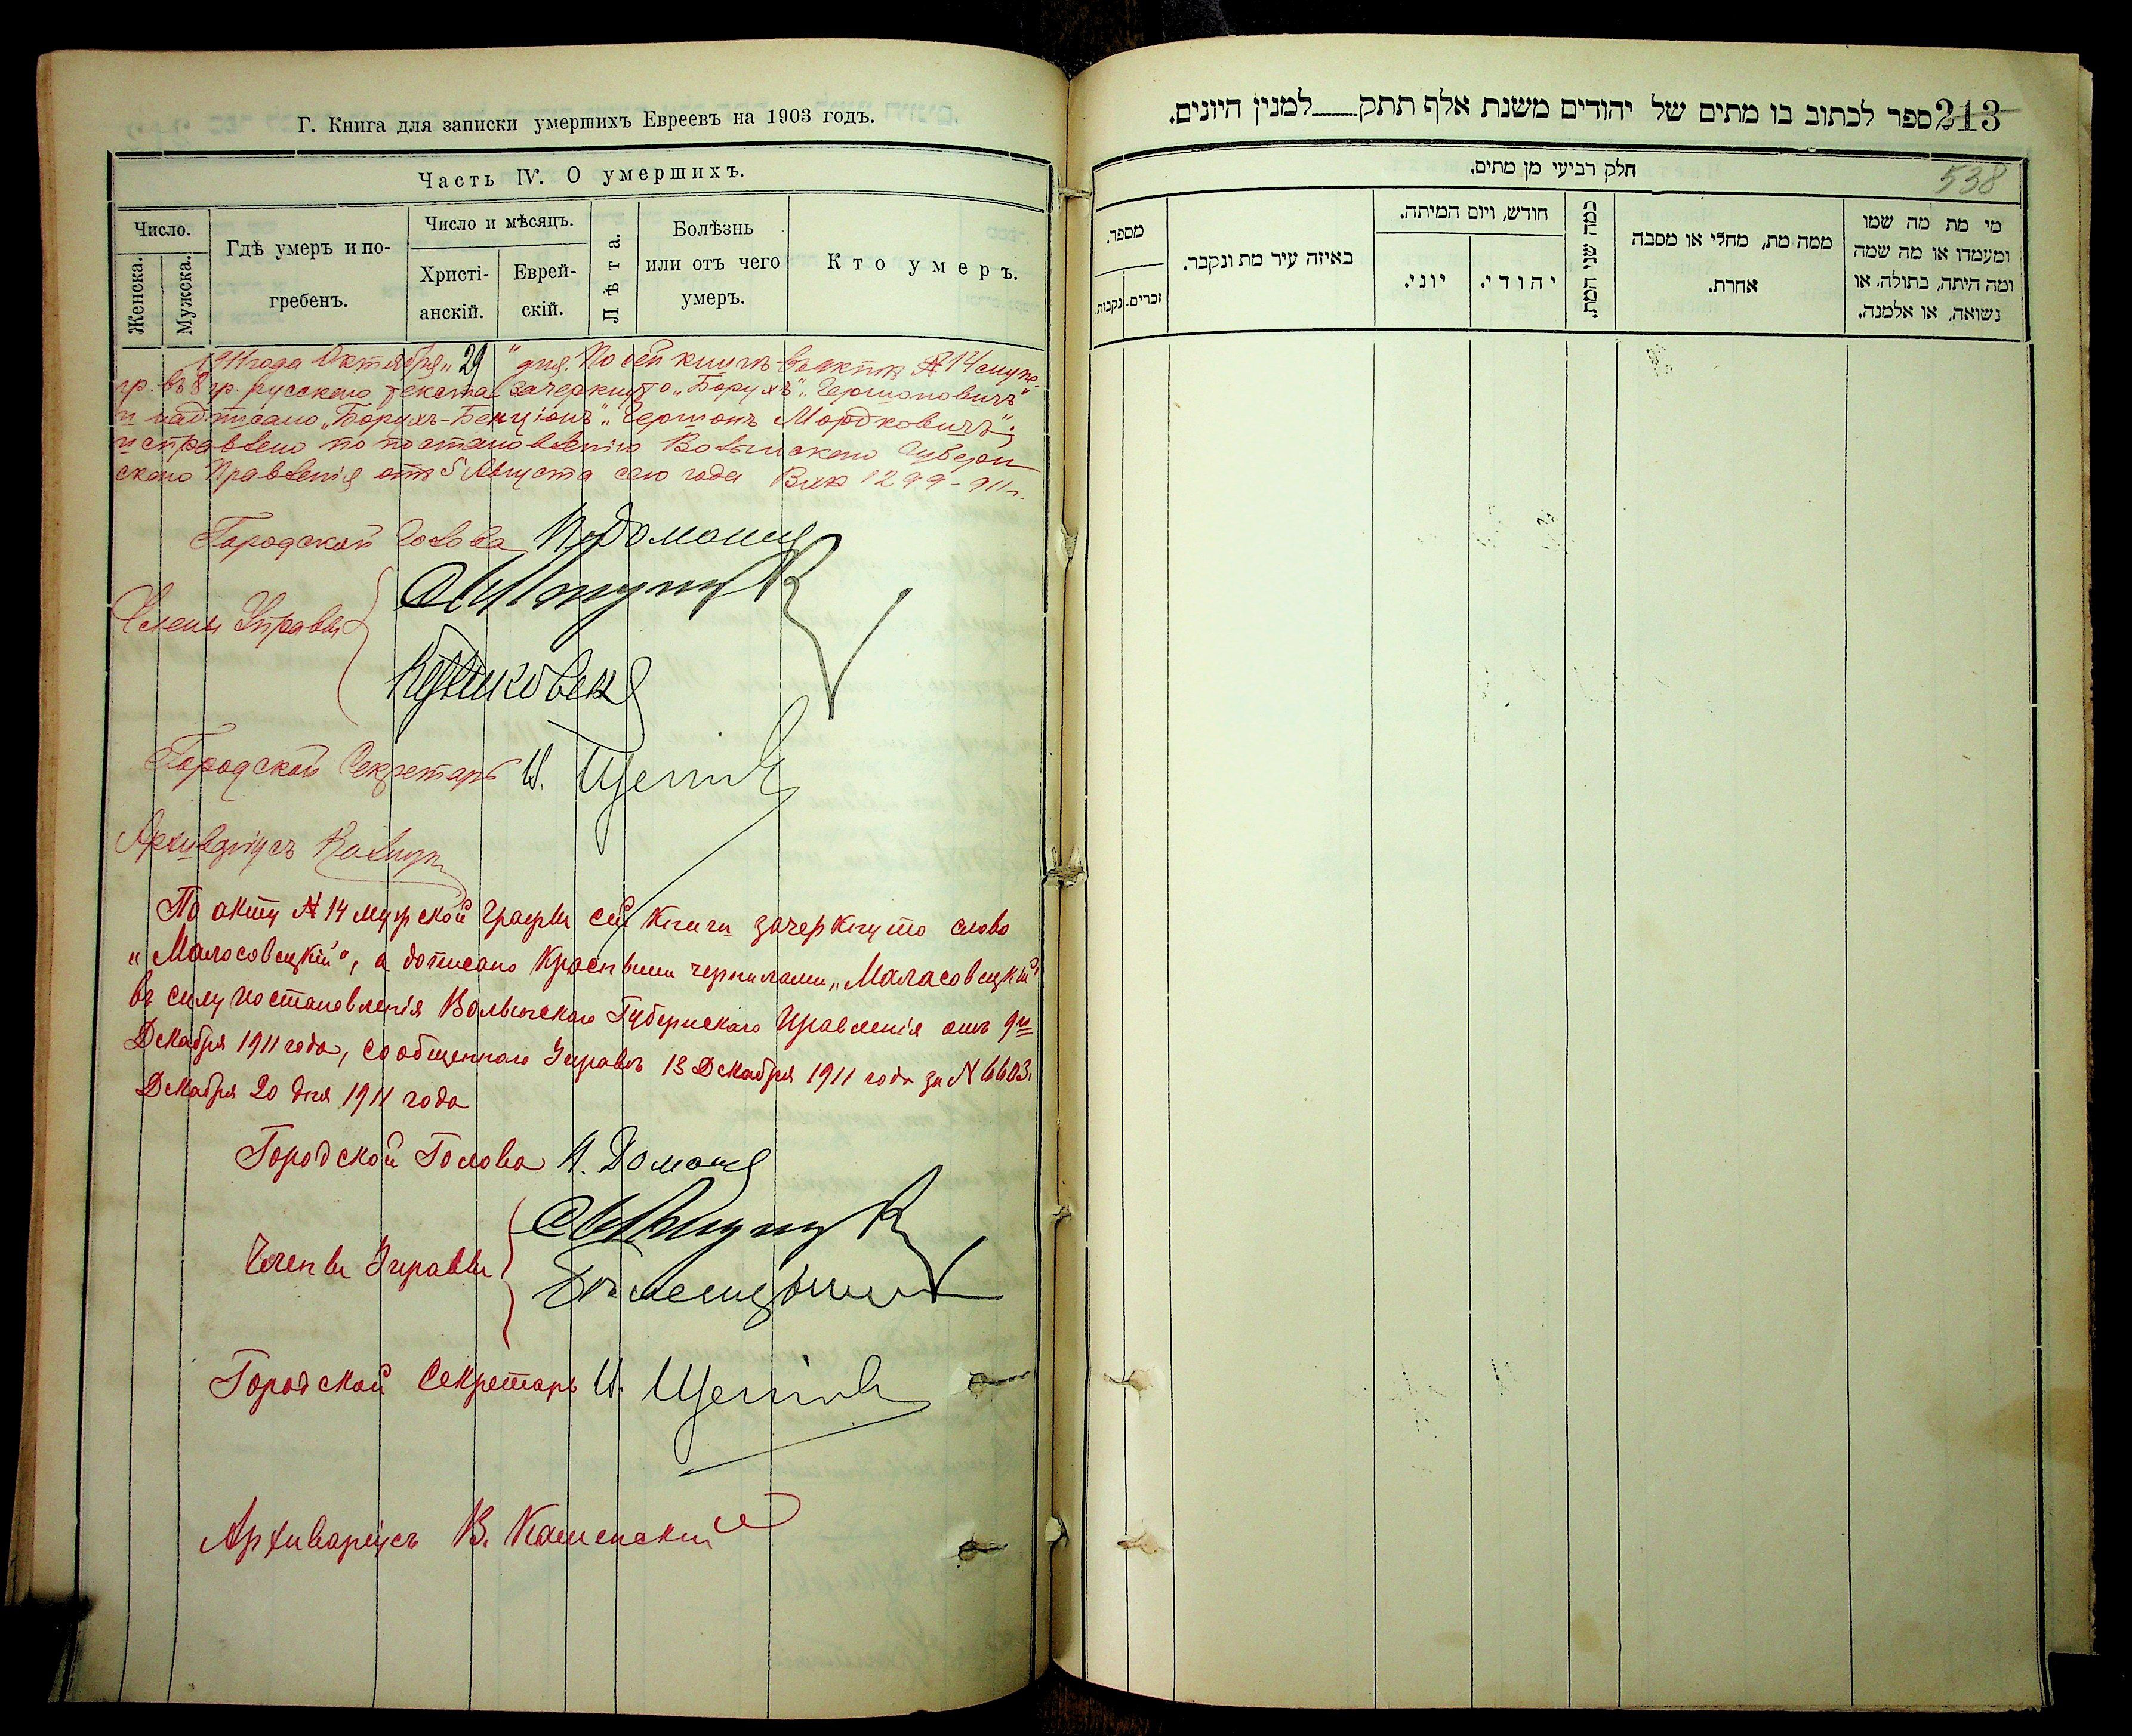 Г. Книга для записки умершихъ Евреевъ на 1903 годъ.
Часть IV. О умершихъ.
Число.
Женска.
Мужска.
Гдѣ умеръ и по-
гребенъ.
Число и мѣсяцъ.
Христі-
анскій.
Еврей-
скій.
Лѣта.
Болѣзнь
или отъ чего
умеръ.
Кто умеръ.
1911 года Октября „29" дня. По сей книгѣ въ актѣ № 14 муж.
гр. въ 8 гр. русского текста зачеркнуто „Борухъ" „Гершоновичъ"
и надписано „Борухъ-Бенціонъ" „Гершонъ Мордковичъ";
исправлено по постановленію Волынскаго Губерн
скаго Правленія отъ 5 Августа сего года Вхд 1299-911 г.
Городской Голова
Члены Управы
Городской Секретарь И.
Архиваріусъ
По акту № 14 мужской графы сей книги зачеркнуто слово
„Малосовицкій", а дописано красными чернилами „Маласовицкій"
въ силу постановленія Волынскаго Губернскаго Правленія отъ 9го
Декабря 1911 года, сообщеннаго Управѣ 13 Декабря 1911 года за № 6603.
Декабря 20 дня 1911 года
Городской Голова
Члены Управы
Городской Секретарь И.
Архиваріусъ В. Каменскій
213
ספר לכתוב בו מתים של יהודים משנת אלף תתק___למנין היונים.
538
חלק רביעי מן מתים.
מספר.
זכרים.
נקבות.
באיזה עיר מת ונקבר.
חודש, ויום המיתה.
יוני.
יהודי.
כמה שני המת.
ממה מת, מחלי או מסבה
אחרת.
מי מת מה שמו
ומעמדו או מה שמה
ומה היתה, בתולה, או
נשואה, או אלמנה.